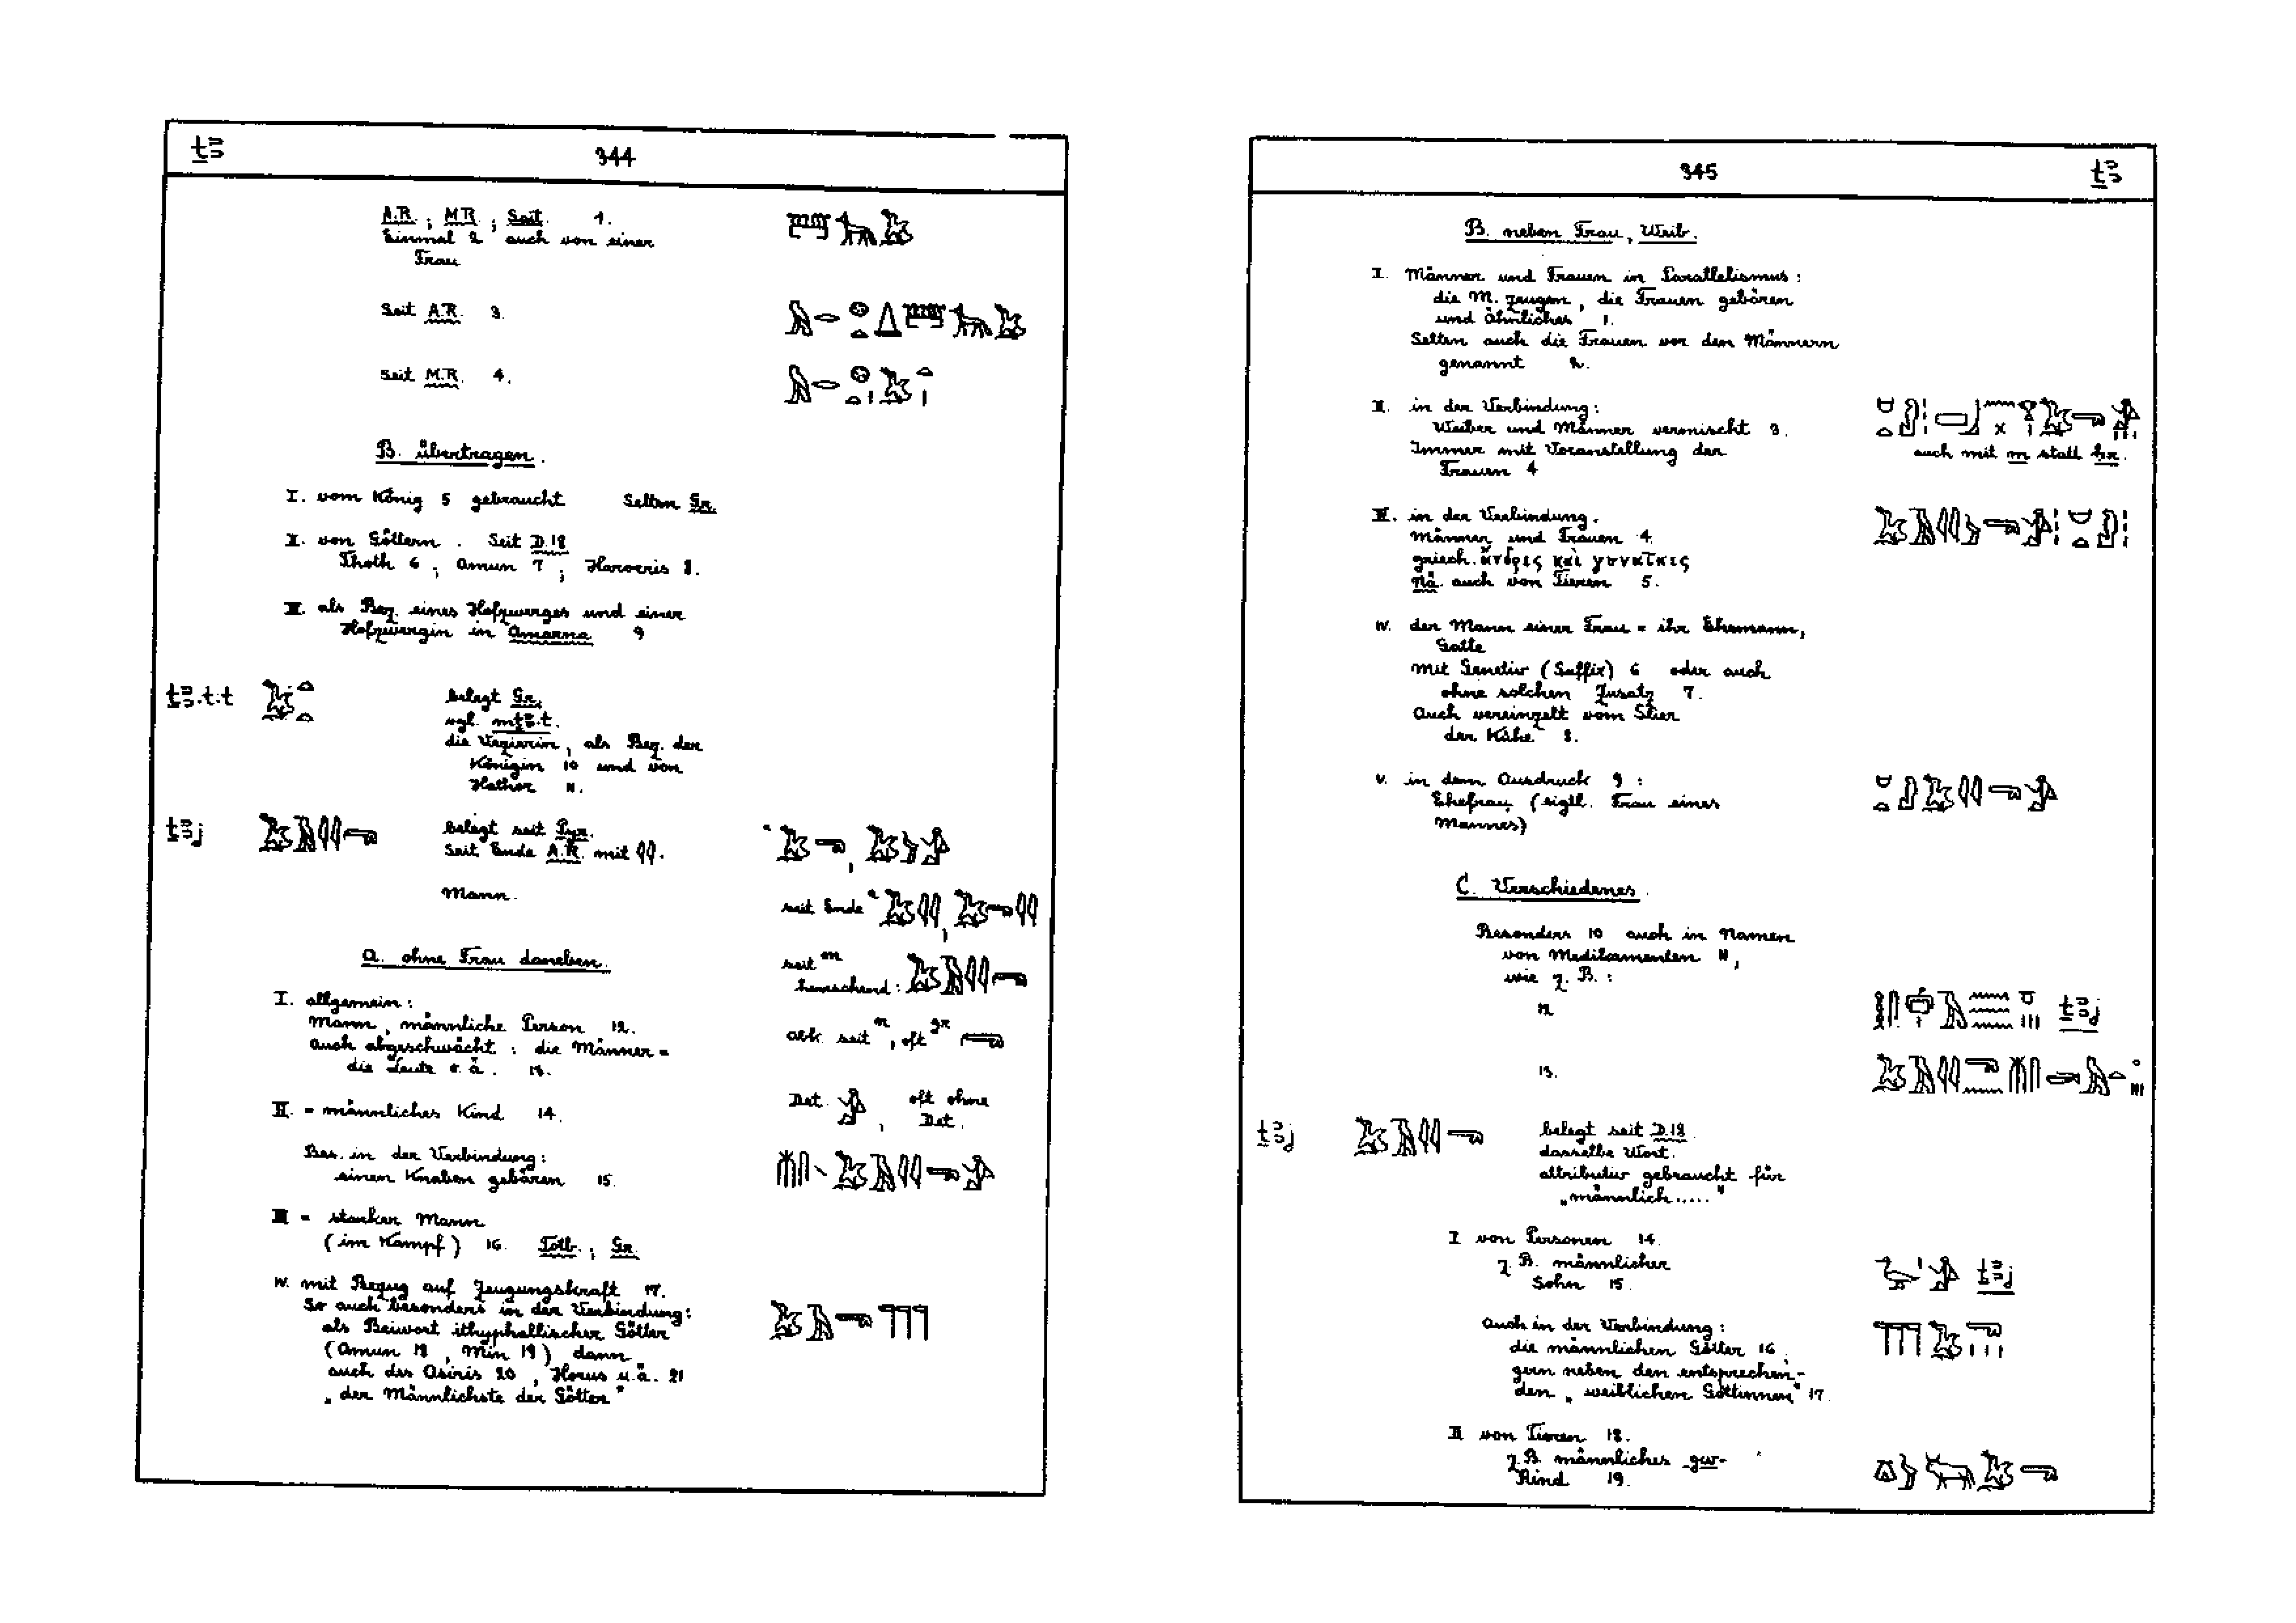 ṯꜣ
344
A.R. ; M.R. ; Sait. 1.
Einmal 2 auch von einer
Frau
Seit A.R. 3.
Seit M.R. 4.
B. übertragen.
I. vom König 5 gebraucht Selten Gr.
II. von Göttern. Seit D.18
Thoth 6 ; Amun 7 ; Haroeris 8.
III. als Bez. eines Hofzwerges und einer
Hofzwergin in Amarna 9
ṯꜣ.t.t
belegt Gr.
vgl. mṯꜣ.t.
die Vezierin, als Bez. der
Königin 10 und von
Hathor 11.
ṯꜣj
belegt seit Pyr.
Seit Ende A.R. mit
Mann.
seit Ende
A. ohne Frau daneben.
seit m
herrschend:
I. allgemein:
Mann, männliche Person 12.
auch abgeschwächt: die Männer =
die Leute o.ä. 13.
abk. seit n, oft gr
II. = männliches Kind 14.
Det. , oft ohne
Det.
Bes. in der Verbindung:
einen Knaben gebären 15.
III = starker Mann
(im Kampf) 16. Totb. ; Gr.
IV. mit Bezug auf Zeugungskraft 17.
So auch besonders in der Verbindung:
als Beiwort ithyphallischer Götter
(Amun 18, Min 19) dann
auch des Osiris 20, Horus u.ä. 21
„der Männlichste der Götter"
345
ṯꜣ
B. neben Frau, Weib.
I. Männer und Frauen in Parallelismus:
die M. zeugen, die Frauen gebären
und ähnliches 1.
Selten auch die Frauen vor den Männern
genannt 2.
II. in der Verbindung:
Weiber und Männer vermischt 3.
Immer mit Voranstellung der
Frauen 4
auch mit m statt ḥr.
III. in der Verbindung.
Männer und Frauen 4.
griech. ἄνδρες καὶ γυναῖκες
Nä. auch von Tieren 5.
IV. der Mann einer Frau = ihr Ehemann,
Gatte
mit Genetiv (Suffix) 6 oder auch
ohne solchen Zusatz 7.
Auch vereinzelt vom Stier
der Kühe 8.
V. in dem Ausdruck 9:
Ehefrau (eigtl. Frau eines
Mannes)
C. Verschiedenes.
Besonders 10 auch in Namen
von Medikamenten 11,
wie z.B.:
12
ṯꜣj
13.
ṯꜣj
belegt seit D.18.
dasselbe Wort.
attributiv gebraucht für
„männlich....."
I von Personen 14.
z.B. männlicher
Sohn 15.
ṯꜣj
Auch in der Verbindung:
die männlichen Götter 16,
gern neben den entsprechen-
den „weiblichen Göttinnen" 17.
II von Tieren 18.
z.B. männliches gw-
Rind 19.